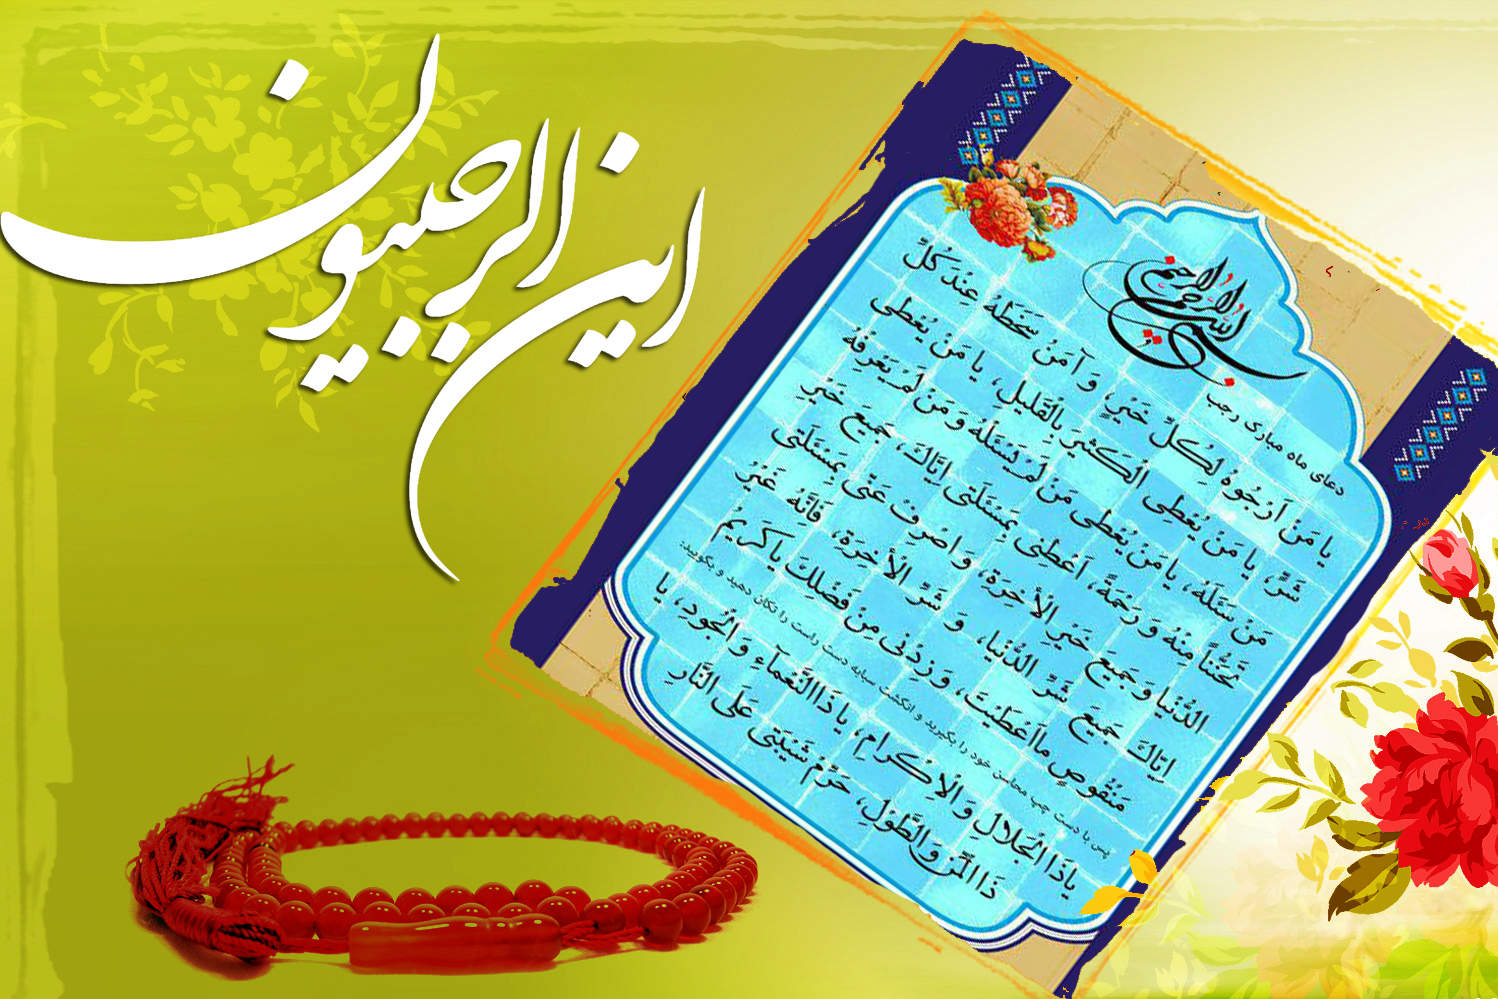 این الرجبیون
بسم الله الرحمن الرحیم
دعای ماه مبارک رجب
یا مَنْ اَرْجُوهُ لِکُلِّ خَیْرٍ، وَ آمَنُ سَخَطَهُ عِنْدَ کُلِّ
شَرٍّ، یا مَنْ یُعْطِی الْکَثیرَ بِالْقَلیلِ، یا مَنْ یُعْطی
مَنْ سَئَلَهُ، یا مَنْ یُعْطی مَنْ لَمْ یَسْئَلْهُ وَ مَنْ لَمْ یَعْرِفْهُ
تَحَنُّناً مِنْهُ وَ رَحْمَةً، اَعْطِنی بِمَسْئَلَتی اِیّاکَ، جَمیعَ خَیْرِ
الدُّنْیا وَ جَمیعَ خَیْرِ الْأخِرَةِ، وَ اصْرِفْ عَنّی بِمَسْئَلَتی
اِیّاکَ جَمیعَ شَرِّ الدُّنْیا، وَ شَرِّ الْأخِرَةِ، فَاِنَّهُ غَیْرُ
مَنْقُوصٍ ما اَعْطَیْتَ، وَ زِدْنی مِنْ فَضْلِکَ یا کَریمُ
پس با دست چپ محاسن خود را بگیرید و انگشت سبابه دست راست را تکان دهید و بگویید:
یا ذَا الْجَلالِ وَ الْاِکْرامِ، یا ذَا النَّعْمآءِ وَ الْجُودِ، یا
ذَا الْمَنِّ وَ الطَّوْلِ، حَرِّمْ شَیْبَتی عَلَی النّارِ